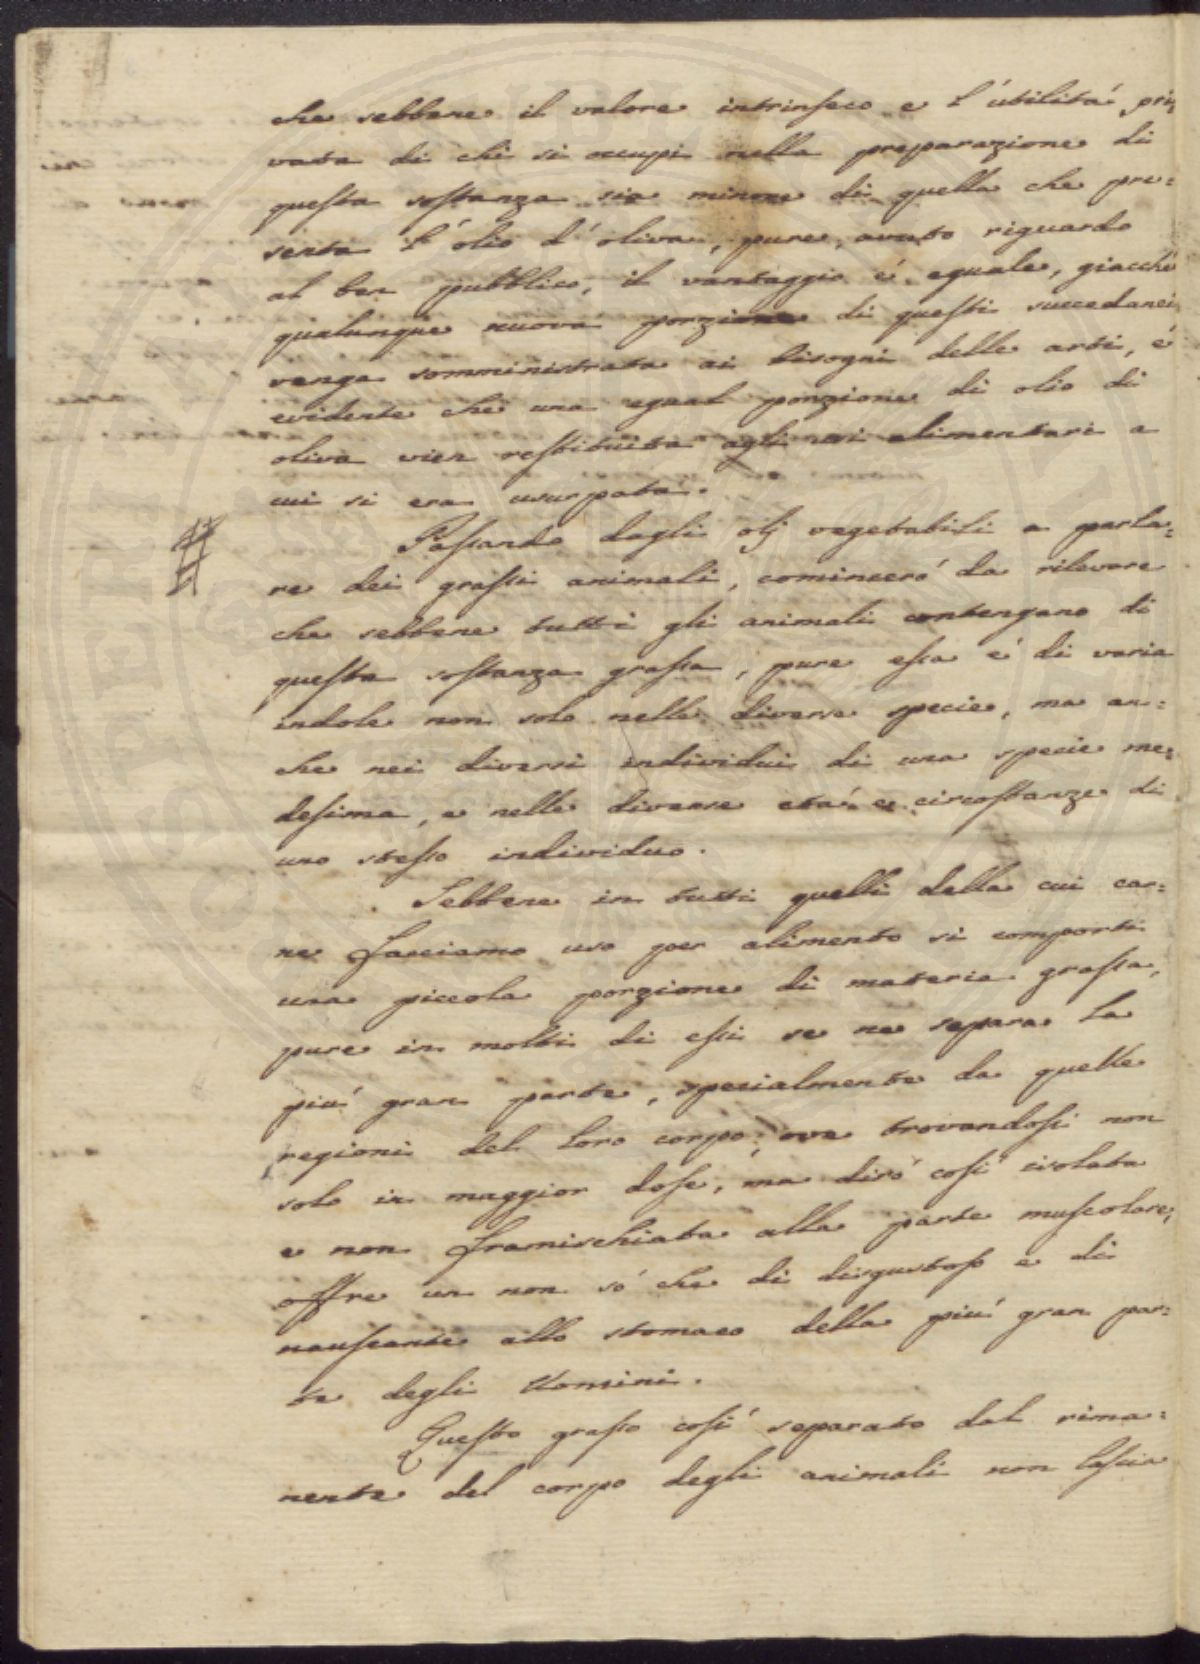 che sebbene il valore intrinseco e l'utilitá pri
vata di chi si occupi nella preparazione di
questa sostanza sia minore di quella che pre=
senta l'olio d'oliva, pure, avuto riguardo
al ben pubblico, il vantaggio é eguale, giacché
qualunque nuova porzione di questi succedanei
venga somministrata ai bisogni delle arti, é
evidente che una egual porzione di olio di
oliva vien restituita agli usi alimentari a
cui si era usurpata.
Passando dagli olj vegetabili a parla=
re dei grassi animali, comincieró da rilevare
che sebbene tutti gli animali contengano di
questa sostanza grassa, pure essa é di varia
indole non solo nelle diverse specie, ma an=
che nei diversi individui di una specie me=
desima, e nelle diverse etá e circostanze di
uno stesso individuo.
Sebbene in tutti quelli della cui car=
ne facciamo uso per alimento si comporti
una piccola porzione di materia grassa,
pure in molti di essi se ne separa la
piú gran parte, specialmente da quelle
regioni del loro corpo, ove trovandosi non
solo in maggior dose, ma diró cosí isolata
e non framischiata alla parte muscolare,
offre un non só che di disgustoso e di
nauseante allo stomaco della piú gran par=
te degli Uomini.
Questo grasso cosí separato dal rima=
nente del corpo degli animali non lascia